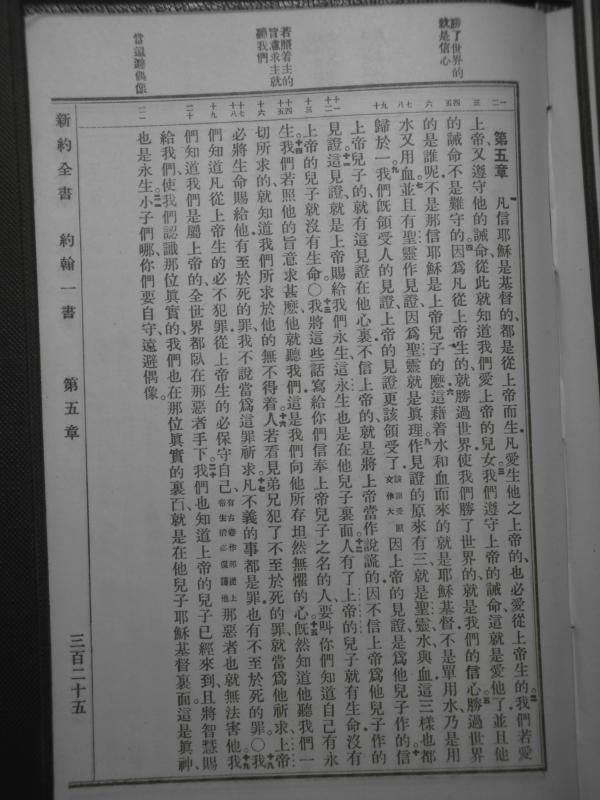 勝了世界的
就是信心
若照着主的
旨意求主就
聽我們
當遠避偶像
第五章 凡信耶穌是基督的、都是從上帝而生、凡愛生他之上帝的、也必愛從上帝生的、我們若愛
上帝、又遵守他的誡命、從此就知道我們愛上帝的兒女、我們遵守上帝的誡命、這就是愛他了、並且他
的誡命不是難守的、因爲凡從上帝生的、就勝過世界、使我們勝了世界的、就是我們的信心、勝過世界
的是誰呢、不是那信耶穌是上帝兒子的麽、這藉着水和血而來的、就是耶穌基督、不是單用水、乃是用
水又用血、並且有聖靈作見證、因爲聖靈就是眞理、作見證的原來有三、就是聖靈水與血、這三樣也都
歸於一、我們旣領受人的見證、上帝的見證更該領受了、因上帝的見證、是爲他兒子作的、信
上帝兒子的、就有這見證在他心裏、不信上帝的、就是將上帝當作說謊的、因不信上帝爲他兒子作的
見證、這見證、就是上帝賜給我們永生、這永生也是在他兒子裏面、人有了上帝的兒子就有生命、沒有
上帝的兒子就沒有生命。○我將這些話寫給你們信奉上帝兒子之名的人、要叫你們知道自己有永
生、我們若照他的旨意求甚麽、他就聽我們、這是我們向他所存坦然無懼的心、旣然知道他聽我們一
切所求的、就知道我們所求於他的無不得着、人若看見弟兄犯了不至於死的罪、就當爲他祈求、上帝
必將生命賜給他、有至於死的罪、我不說當爲這罪祈求、凡不義的事都是罪、也有不至於死的罪。○我
們知道凡從上帝生的必不犯罪、從上帝生的必保守自己、有古卷作那從上帝生的必保護他那惡者也就無法害他、我
們知道我們是屬上帝的、全世界都臥在那惡者手下、我們也知道上帝的兒子已經來到、且將智慧賜
給我們、使我們認識那位眞實的、我們也在那位眞實的裏面、就是在他兒子耶穌基督裏面、這是眞神、
也是永生、小子們哪、你們要自守、遠避偶像。
新約全書 約翰一書 第五章 三百二十五